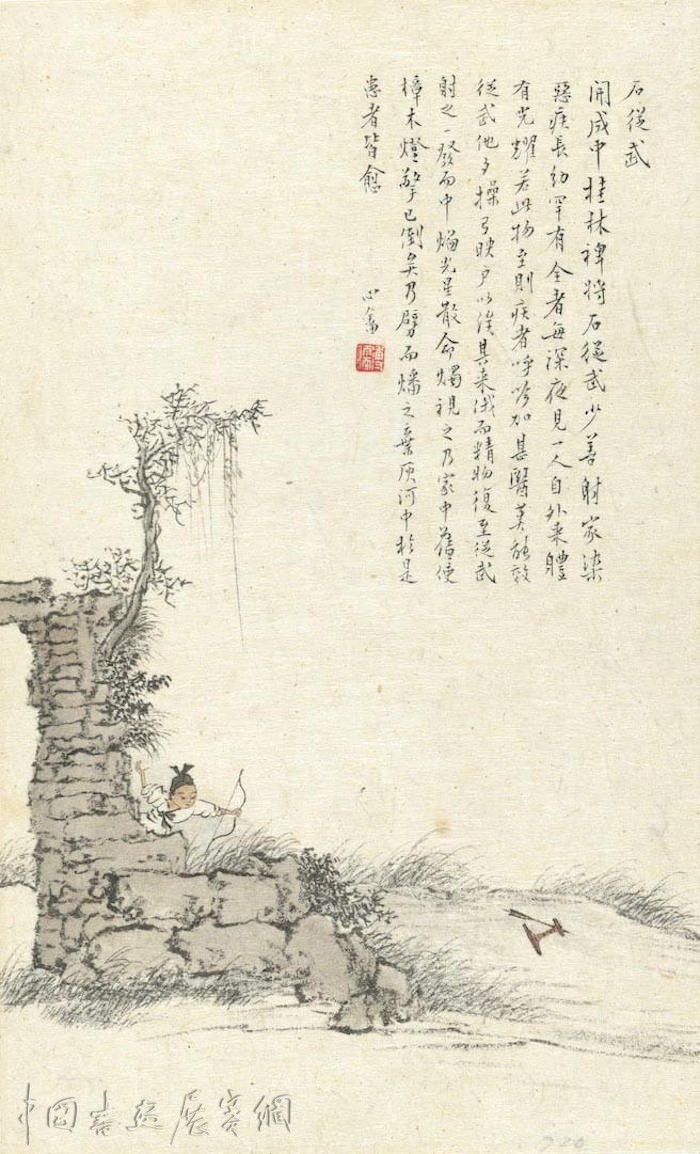 石從武
開成中桂林裨將石從武少善射家染
惡疾長幼罕有全者每深夜見一人自外來體
有光耀若此物至則疾者呼吟加甚醫莫能效
從武他夕操弓映戶以俟其來俄而精物復至從武
射之一發而中焰光星散命燭視之乃家中舊使
樟木燈擎已倒矣乃劈而燔之棄灰河中於是
患者皆愈
心畬
中国書画展賽網